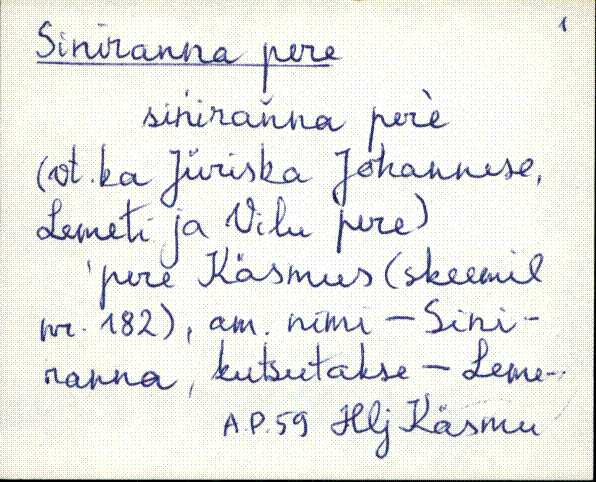 1
Siniranna pere
sińirańna pere`
(vt. ka Jüriska Johannese,
Lemeti ja Vilu pere)
pere Käsmus (skeemil
nr. 182), am. nimi – Sini-
ranna, kutsutakse – Leme-
A.P. 59 Hlj Käsmu